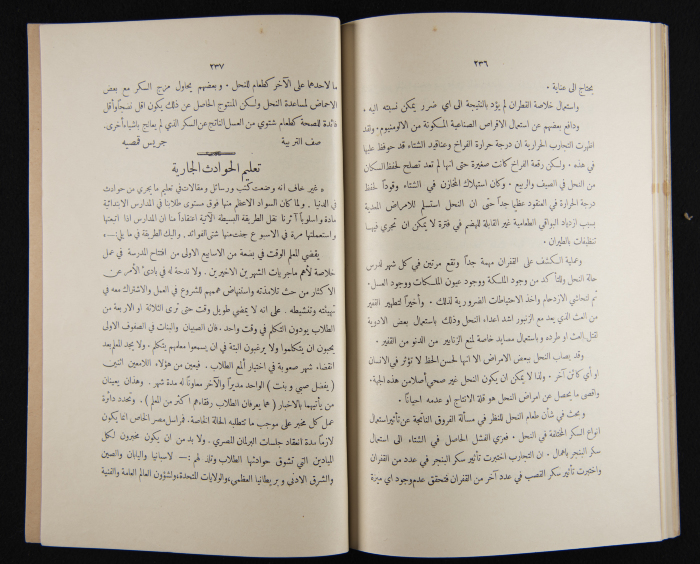 ٢٣٦
يحتاج الى عناية .
واستعمال خلاصة القطران لم يؤد بالنتيجة الى اي ضرر يمكن نسبته اليه .
ودافع بعضهم عن استعمال الاقراص الصناعية المسكونة من الالومنيوم . ولقد
اظهرت التجارب الحرارية ان درجة حرارة الفراخ وعناقيد الشتاء قد حوفظ عليها
في هذه . ولكن رقعة الفراخ كانت صغيرة حتى انها لم تعد تصلح لحفظ السكان
من النحل في الصيف والربيع . وكان استهلاك المخازن في الشتاء وقوداً لحفظ
درجة الحرارة في العنقود عظيما جداً حتى ان النحل استسلم للامراض المعدية
بسبب ازدياد البواقي الطعامية غير القابلة للهضم في فترة لا يمكن ان تجري فيها
تنظيفات بالطيران .
وعملية الكشف على القفران مهمة جداً وتقع مرتين في كل شهر لدرس
حالة النحل وللتأكد من وجود الملكة ووجود عيون الملكات ووجود العسل .
ثم لتحاشي الازدحام واخذ الاحتياطات الضرورية لذلك . وأخيراً لتطهير القفير
من العث الذي يعد مع الزنبور اشد اعداء النحل وذلك باستعمال بعض الادوية
لقتل العث او طرده و باستعمال مصايد خاصة لمنع الزنابير من الدنو من القفير .
وقد يصاب النحل ببعض الامراض الا انها لحسن الحظ لا تؤثر في الانسان
او أي كائن آخر . ولذا لا يمكن ان يكون النحل غير صحي أصلا من هذه الجهة .
واقصى ما يحصل عن امراض النحل هو قلة الانتاج او عدمه احياناً .
وبحث في شأن طعام النحل للنظر في مسألة الفروق الناتجة عن تأثير استعمال
انواع السكر المختلفة في النحل . فعزي الفشل الحاصل في الشتاء الى استعمال
سكر البنجر باهمال . ان التجارب اختبرت تأثير سكر البنجر في عدد من القفران
واختبرت تأثير سكر القصب في عدد آخر من القفران فتحقق عدم وجود اي ميزة
٢٣٧
ما لاحدهما على الآخر كطعام للنحل . و بعضهم يحاول مزج السكر مع بعض
الاحماض لمساعدة النحل ولكن المنتوج الحاصل عن ذلك يكون اقل نضجاً وأقل
فائدة للصحة كطعام شتوي من العسل الناتج عن السكر الذي لم يعالج باشياء أخرى .
صف التربية جريس قمصيه
تعليم الحوادث الجارية
غير خاف انه وضعت كتب ورسائل ومقالات في تعليم ما يجري من حوادث
في الدنيا . ولما كان السواد الاعظم منها فوق مستوى طلابنا في المدارس الابتدائية
مادة واسلوباً آثرنا نقل الطريقة البسيطة الآتية اعتقاداً منا ان المدارس اذا اتبعتها
واستعملتها مرة في الاسبوع جنت منها شتى الفوائد . واليك الطريقة في ما يلي :—
يقضي المعلم الوقت في بضعة من الاسابيع الاولى من افتتاح المدرسة في عمل
خلاصة لأهم مجريات الشهرين الاخيرين . ولا ندحة له في بادئ الأمر عن
الاكثار من حث تلامذته واستنهاض هممهم للشروع في العمل والاشتراك معه في
تهيئته وتنشيطه . على انه لا يمضي طويل وقت حتى ترى الثلاثة او الاربعة من
الطلاب يودون التكلم في وقت واحد . فان الصبيان والبنات في الصفوف الاولى
يحبون ان يتكلموا ولا يرغبون البتة في ان يسمعوا معلمهم يتكلم . ولا يجد المعلم بعد
انقضاء شهر صعوبة في اختيار ألمع الطلاب . فيعين من هؤلاء اللامعين اثنين
( يفضل صبي و بنت ) الواحد مديراً والآخر معاوناً له مدة شهر . وهذان يعينان
من يأتيهما بالاخبار ( هما يعرفان الطلاب رفقاءهم اكثر من المعلم ) . وتحدد دائرة
عمل كل مخبر على موجب ما تتطلبه الحالة الخاصة . فمراسل مصر الخاص انما يكون
لازماً مدة انعقاد جلسات البرلمان المصري . ولا بد من ان يكون مخبرون لكل
الميادين التي تشوق حوادثها الطلاب وتلذ لهم :— لاسبانيا واليابان والصين
والشرق الادنى و بريطانيا العظمى ، والولايات المتحدة ، ولشؤون العالم العامة والفنية